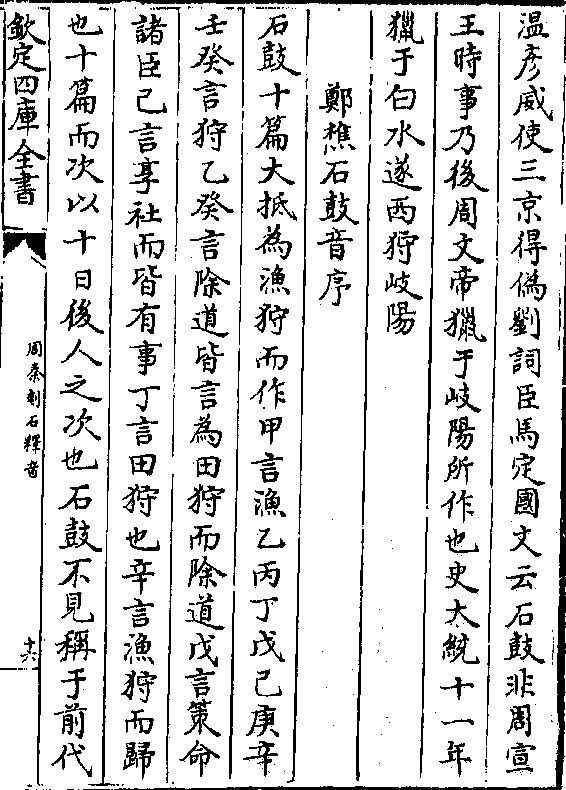 温彦威使三京得僞劉詞臣馬定國文云石鼓非周宣
王時事乃後周文帝獵于岐陽所作也史大統十一年
獵于白水遂西狩岐陽
鄭樵石鼓音序
石鼓十篇大抵為漁狩而作甲言漁乙丙丁戊己庚辛
壬癸言狩乙癸言除道皆言為田狩而除道戊言策命
諸臣己言享社而皆有事丁言田狩也辛言漁狩而歸
也十篇而次以十日後人之次也石鼓不見稱于前代
欽定四庫全書
周秦刻石釋音
十六